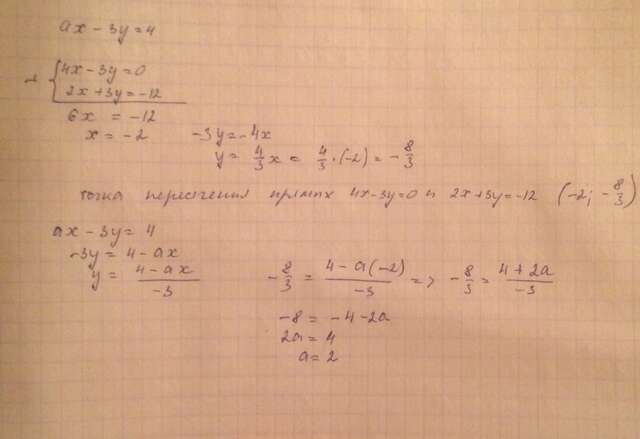 ax - 3y = 4
+ { 4x - 3y = 0
2x + 3y = -12
6x = -12
x = -2
-3y = -4x
y = 4/3 x = 4/3 · (-2) = -8/3
точка пересечения прямых 4x-3y=0 и 2x+3y=-12 (-2; -8/3)
ax - 3y = 4
-3y = 4 - ax
y = (4 - ax)/-3
-8/3 = (4 - a(-2))/-3 => -8/3 = (4 + 2a)/-3
-8 = -4 - 2a
2a = 4
a = 2